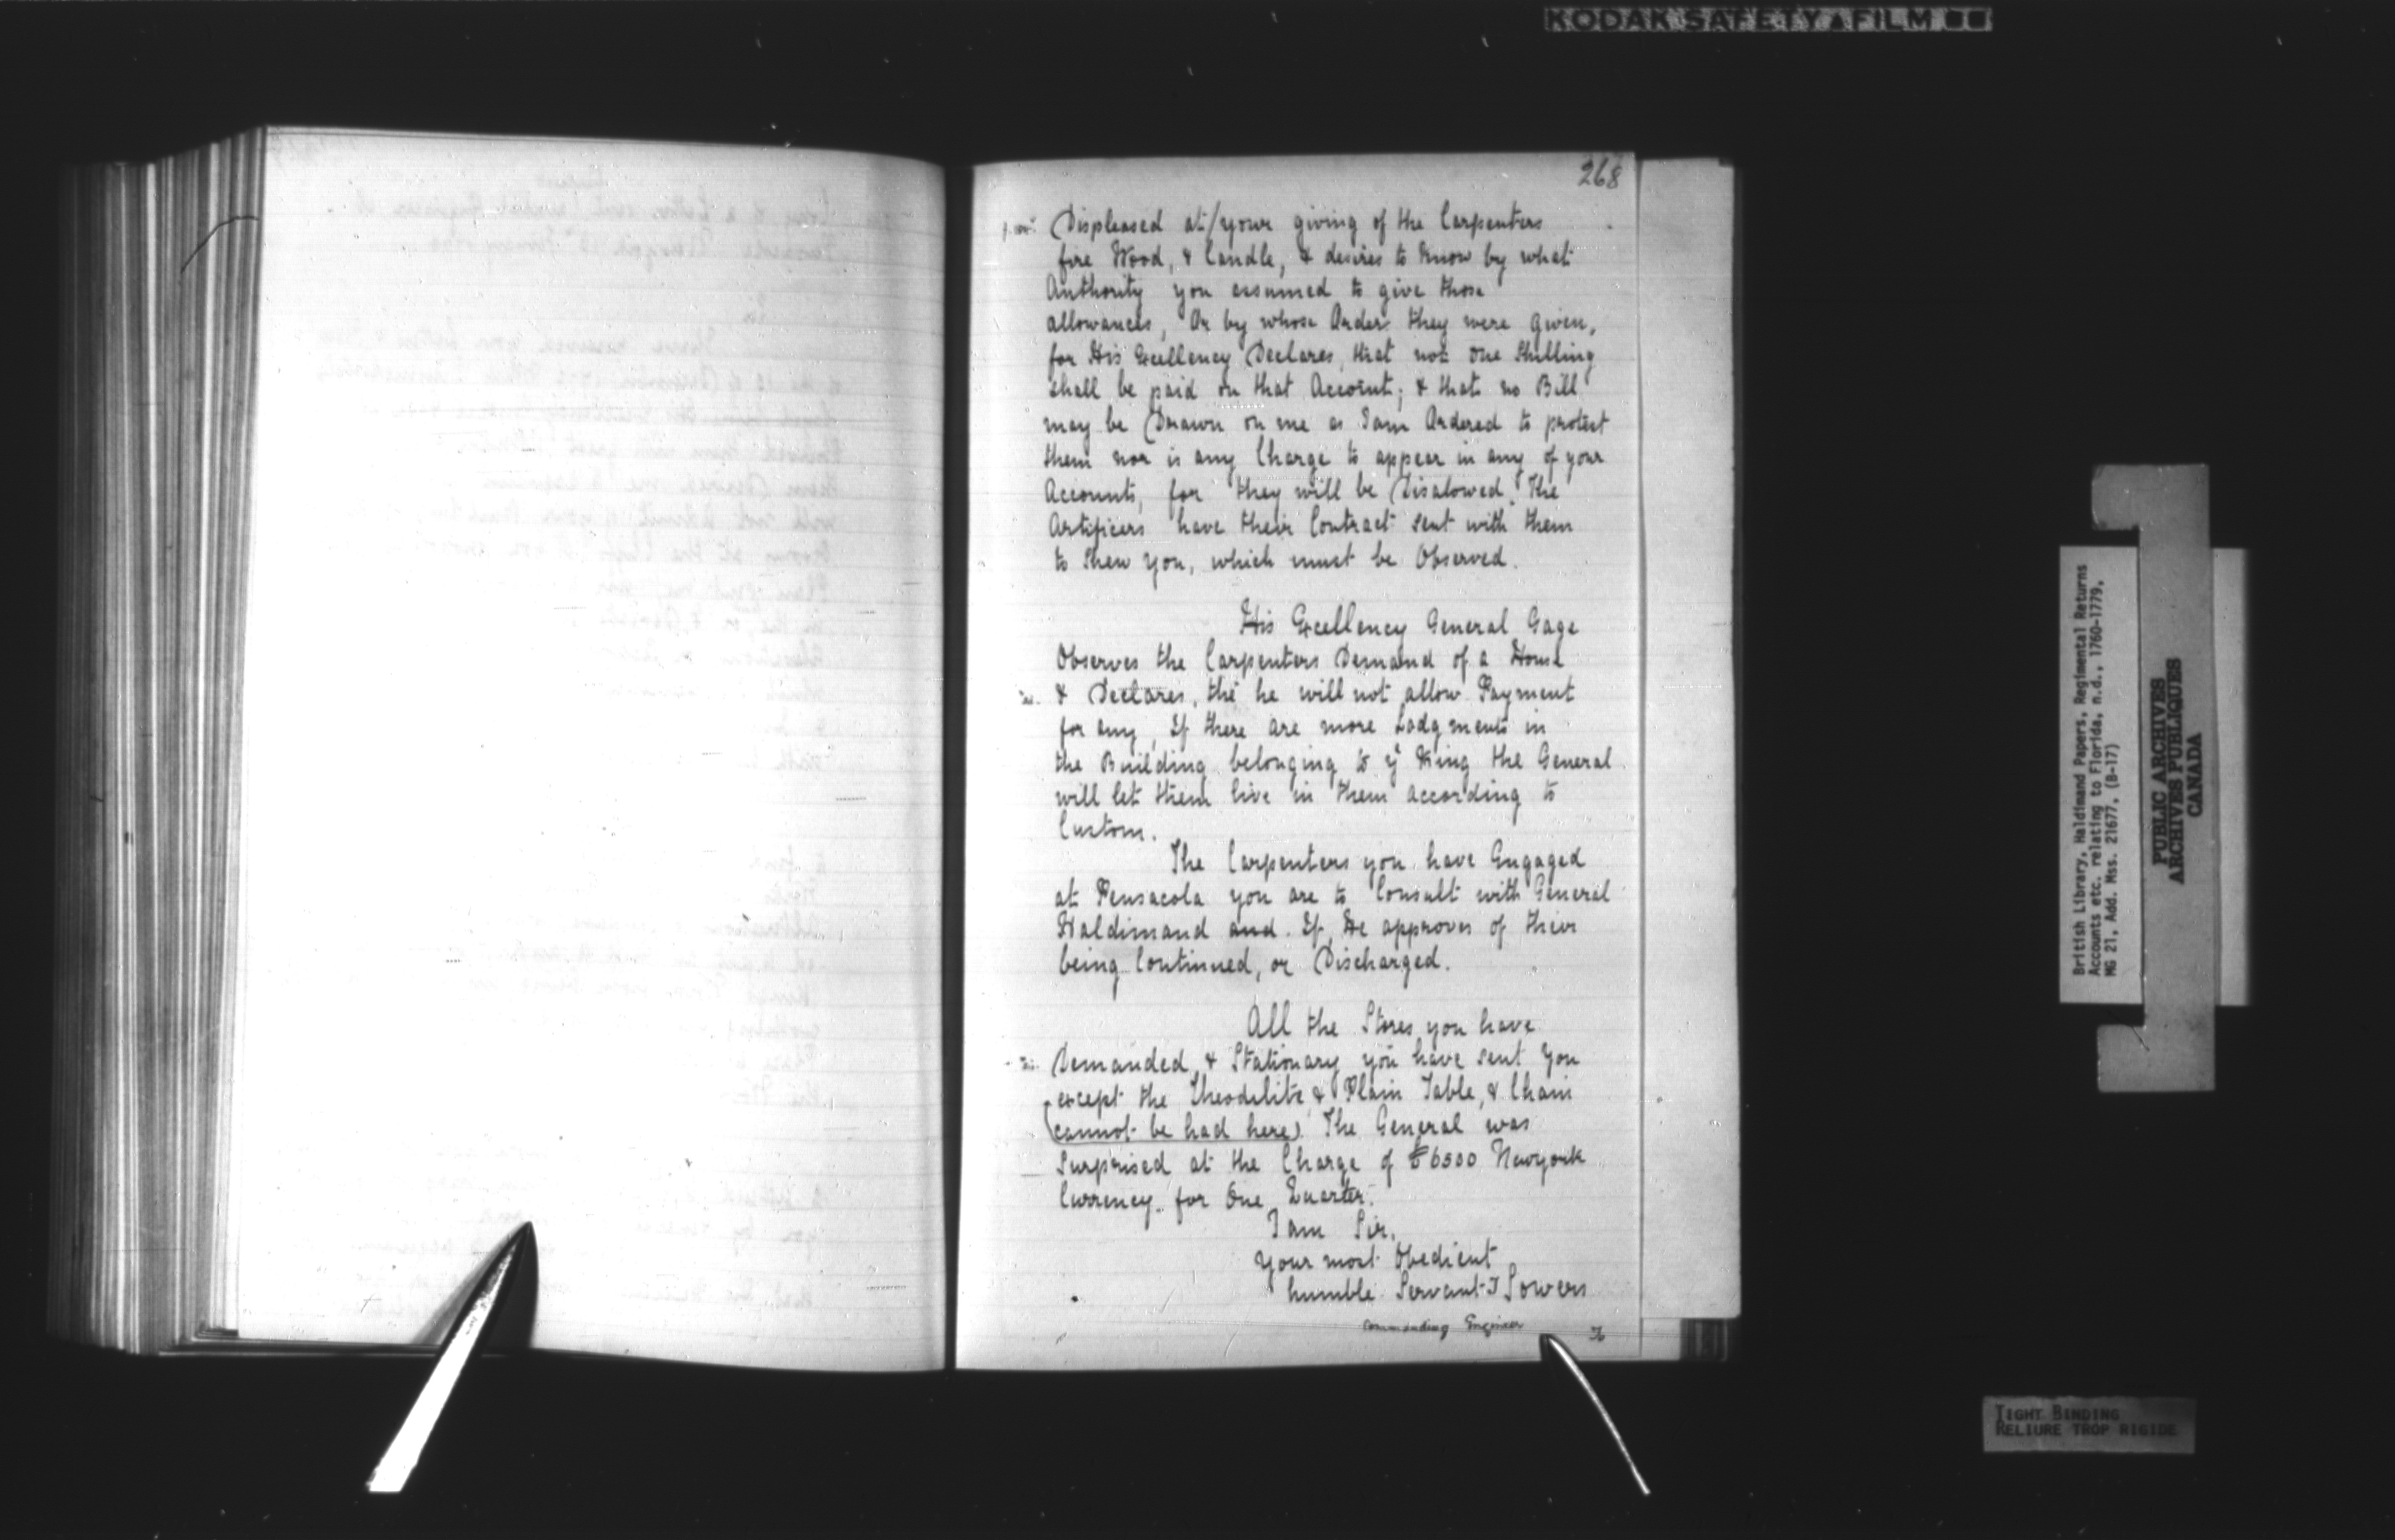 KODAK SAFETY FILM
268
Displeased at/your giving of the Carpenters
fire Wood, & Candle, & desires to Know by what
Authority you assumed to give those
allowances, Or by whose Order they were given,
for His Excellency Declares, that not one Shilling
shall be paid on that Account; & that no Bill
may be Drawn on me as I am Ordered to protest
them nor is any Charge to appear in any of your
Accounts, for they will be Disalowed. The
Artificers have their Contract sent with them
to Shew you, which must be Observed.
His Excellency General Gage
Observes the Carpenters Demand of a House
& Declares, the he will not allow Payment
for any, If there are more Lodgments in
the Building belonging to ye King the General
will let them live in them according to
Custom.
The Carpenters you have Engaged
at Pensacola you are to Consult with General
Haldimand and. If He approves of their
being Continued, or Discharged.
All the Stores you have
Demanded, & Stationary you have sent You
except the Theodilite & Plain Table, & Chain
(cannot be had here). The General was
Surprised at the Charge of £6500 Newyork
Currency for One Quarter.
I am Sir,
Your most Obedient
humble Servant T Sowers
Commanding Engineer
British Library, Haldimand Papers, Regimental Returns
Accounts etc. relating to Florida, n.d., 1760-1779.
MG 21, Add. Mss. 21677, (B-17)
PUBLIC ARCHIVES
ARCHIVES PUBLIQUES
CANADA
TIGHT BINDING
RELIURE TROP RIGIDE